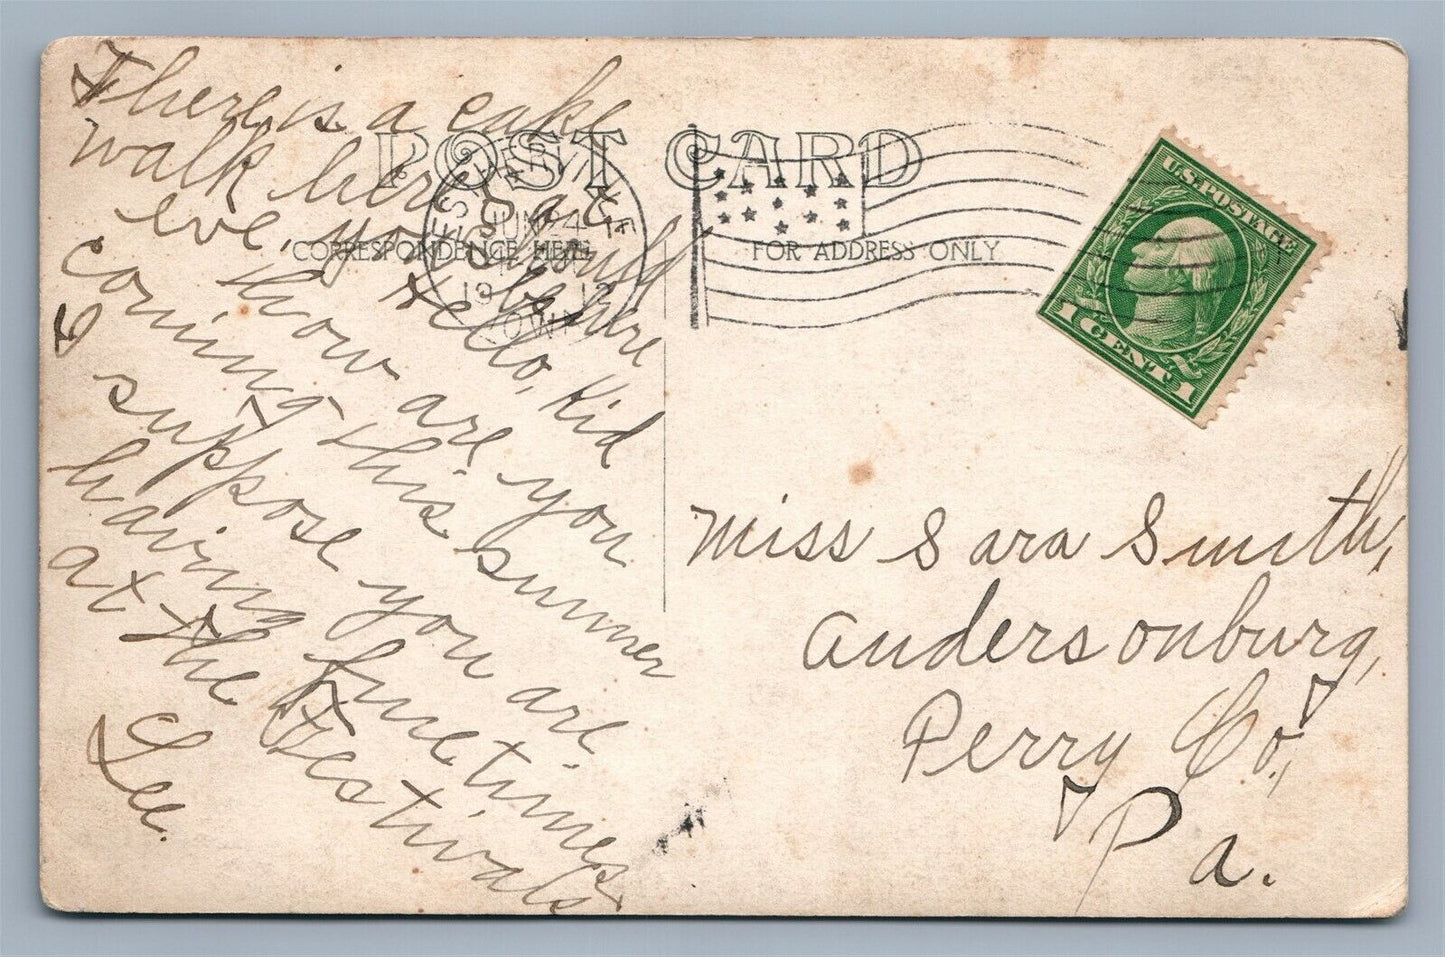 There is a cake
walk here Sat
eve, you should
be here
Hello, Kid
how are you
coming this summer
I suppose you are
having fine times
at the Festivals
Lee.
POST CARD
CORRESPONDENCE HERE
FOR ADDRESS ONLY
JUN 24
1912
IOWA
U.S. POSTAGE
1 CENT 1
Miss Sara Smith,
Andersonburg,
Perry Co.,
Pa.